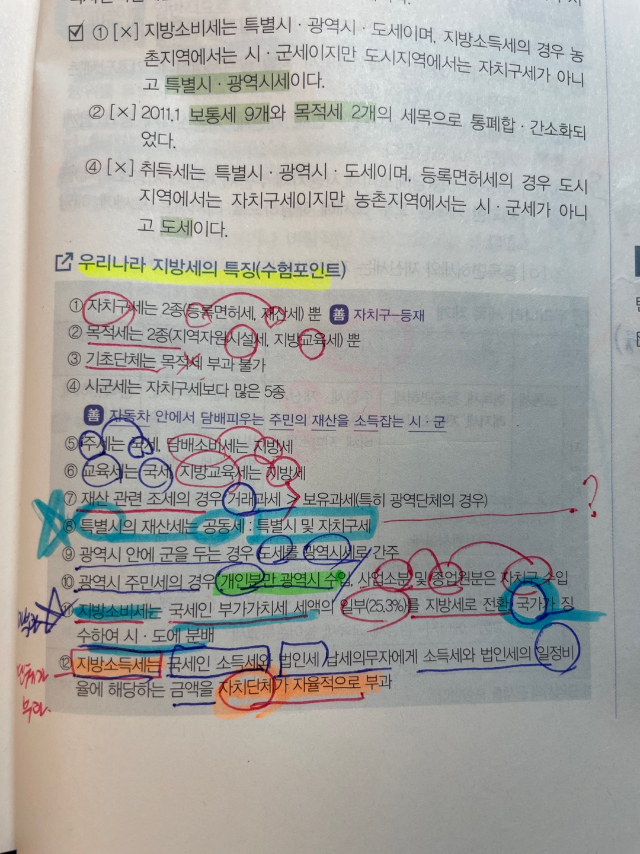 ① [×] 지방소비세는 특별시·광역시·도세이며, 지방소득세의 경우 농
촌지역에서는 시·군세이지만 도시지역에서는 자치구세가 아니
고 특별시·광역시세이다.
② [×] 2011.1 보통세 9개와 목적세 2개의 세목으로 통폐합·간소화되
었다.
④ [×] 취득세는 특별시·광역시·도세이며, 등록면허세의 경우 도시
지역에서는 자치구세이지만 농촌지역에서는 시·군세가 아니
고 도세이다.
우리나라 지방세의 특징(수험포인트)
① 자치구세는 2종(등록면허세, 재산세) 뿐 善 자치구-등재
② 목적세는 2종(지역자원시설세, 지방교육세) 뿐
③ 기초단체는 목적세 부과 불가
④ 시군세는 자치구세보다 많은 5종
善 자동차 안에서 담배피우는 주민의 재산을 소득잡는 시·군
⑤ 주세는 국세, 담배소비세는 지방세
⑥ 교육세는 국세, 지방교육세는 지방세
⑦ 재산 관련 조세의 경우 거래과세 > 보유과세(특히 광역단체의 경우) ?
⑧ 특별시의 재산세는 공동세 : 특별시 및 자치구세
⑨ 광역시 안에 군을 두는 경우 도세를 광역시세로 간주
⑩ 광역시 주민세의 경우 개인분만 광역시 수입, 사업소분 및 종업원분은 자치구 수입
⑪ 지방소비세는 국세인 부가가치세 세액의 일부(25.3%)를 지방세로 전환, 국가가 징
수하여 시·도에 분배
⑫ 지방소득세는 국세인 소득세와 법인세 납세의무자에게 소득세와 법인세의 일정비
율에 해당하는 금액을 자치단체가 자율적으로 부과